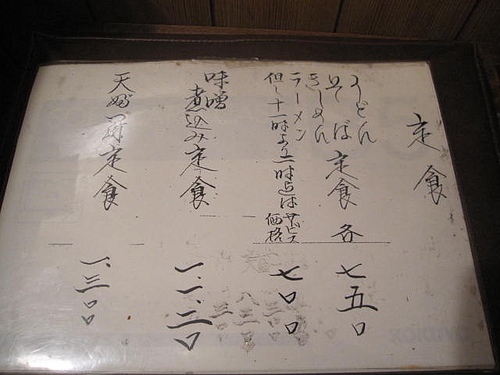 定食
うどん
そば
きしめん
ラーメン
定食 各 七五〇
但し十一時より二時迄は サービス価格 七〇〇
味噌煮込み定食 一、一三〇
天婦ら定食 一、三〇〇